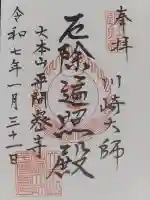 奉拝
川崎大師
厄除遍照殿
大本山平間教寺
令和七年一月三十一日